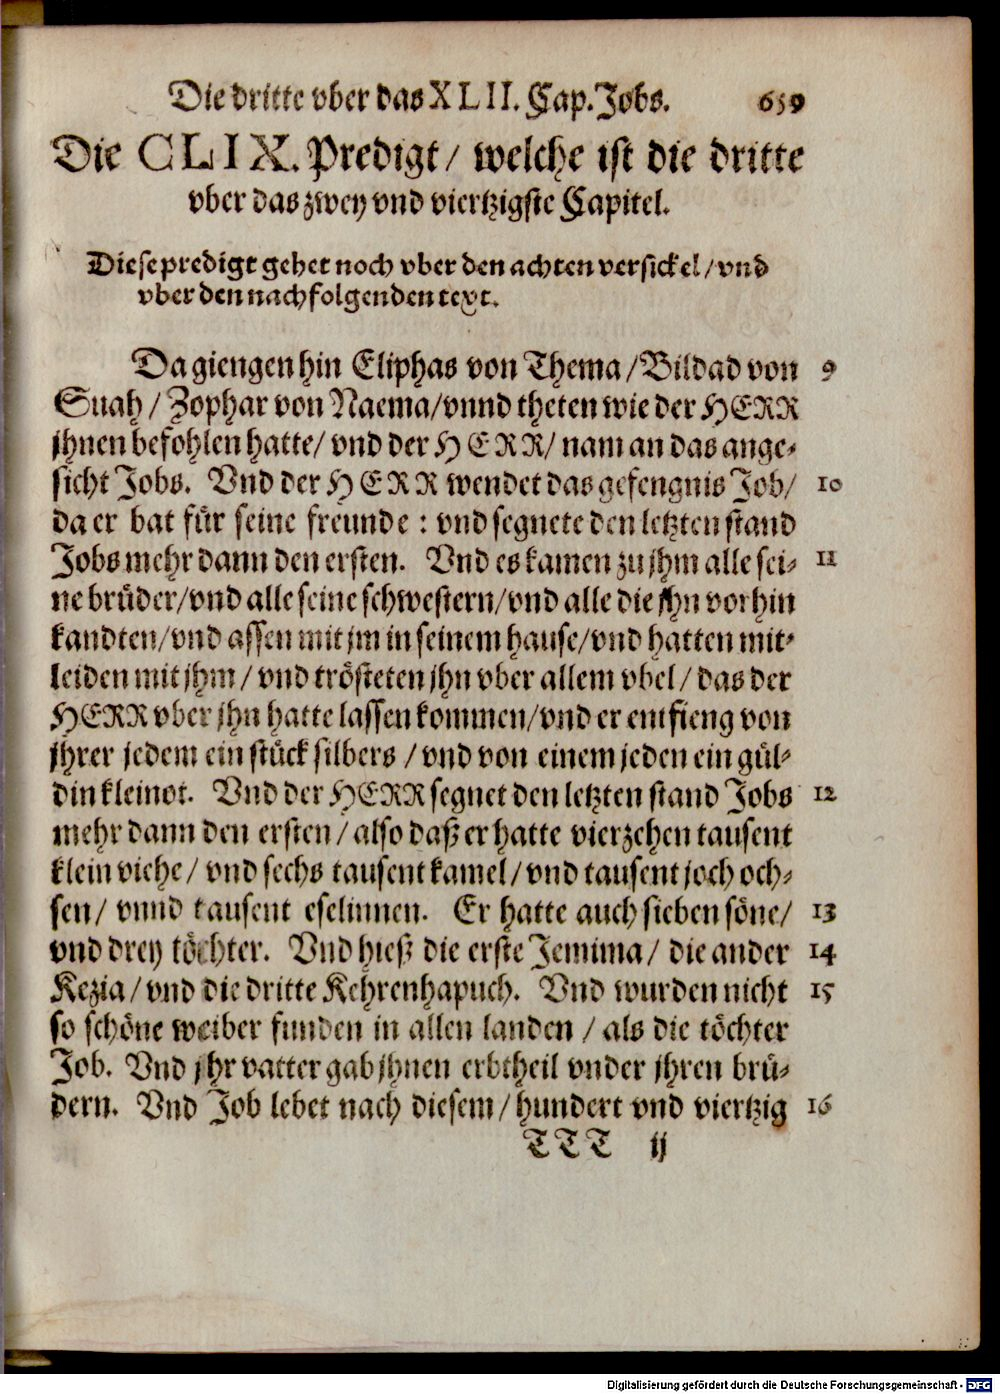 Die dritte vber das XLII. Cap. Jobs. 659
Die CLIX. Predigt / welche ist die dritte
vber das zwey vnd viertzigste Capitel.
Diese predigt gehet noch vber den achten versickel / vnd
vber den nachfolgenden text.
Da giengen hin Eliphas von Thema / Bildad von 9
Suah / Zophar von Naema / vnnd theten wie der HERR
jhnen befohlen hatte / vnd der HERR / nam an das ange-
sicht Jobs. Vnd der HERR wendet das gefengnis Job / 10
da er bat für seine freunde : vnd segnete den letzten stand
Jobs mehr dann den ersten. Vnd es kamen zu jhm alle sei- 11
ne brüder / vnd alle seine schwestern / vnd alle die jhn vorhin
kandten / vnd assen mit jm in seinem hause / vnd hatten mit-
leiden mit jhm / vnd trösteten jhn vber allem vbel / das der
HERR vber jhn hatte lassen kommen / vnd er emfieng von
jhrer jedem ein stück silbers / vnd von einem jeden ein gül-
din kleinot. Vnd der HERR segnet den letzten stand Jobs 12
mehr dann den ersten / also daß er hatte vierzehen tausent
klein viehe / vnd sechs tausent kamel / vnd tausent joch och-
sen / vnnd tausent eselinnen. Er hatte auch sieben söne / 13
vnd drey töchter. Vnd hieß die erste Jemima / die ander 14
Kezia / vnd die dritte Kehrenhapuch. Vnd wurden nicht 15
so schöne weiber funden in allen landen / als die töchter
Job. Vnd jhr vatter gab jhnen erbtheil vnder jhren brü-
dern. Vnd Job lebet nach diesem / hundert vnd viertzig 16
TTT ij
Digitalisierung gefördert durch die Deutsche Forschungsgemeinschaft - DFG